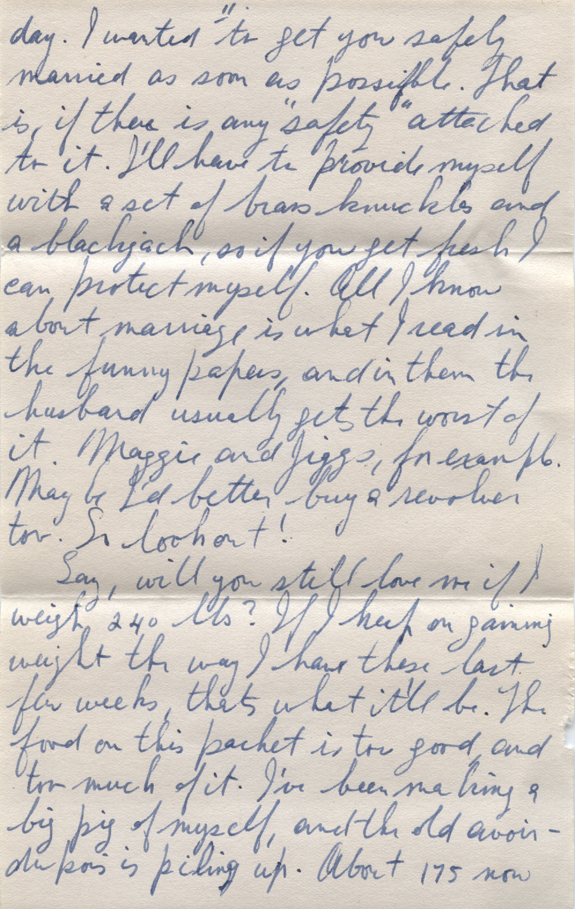 day. I wanted to get you safely
married as soon as possible. That
is, if there is any "safety" attached
to it. I'll have to provide myself
with a set of brass knuckles and
a blackjack, so if you get fresh I
can protect myself. All I know
about marriage is what I read in
the funny papers, and in them the
husband usually gets the worst of
it. Maggie and Jiggs, for example.
Maybe I'd better buy a revolver
too. So look out!
Say, will you still love me if I
weigh 240 lbs? If I keep on gaining
weight the way I have these last
few weeks, thats what it'll be. The
food on this packet is too good, and
too much of it. I've been making a
big pig of myself, and the old avoir-
dupois is piling up. About 175 now